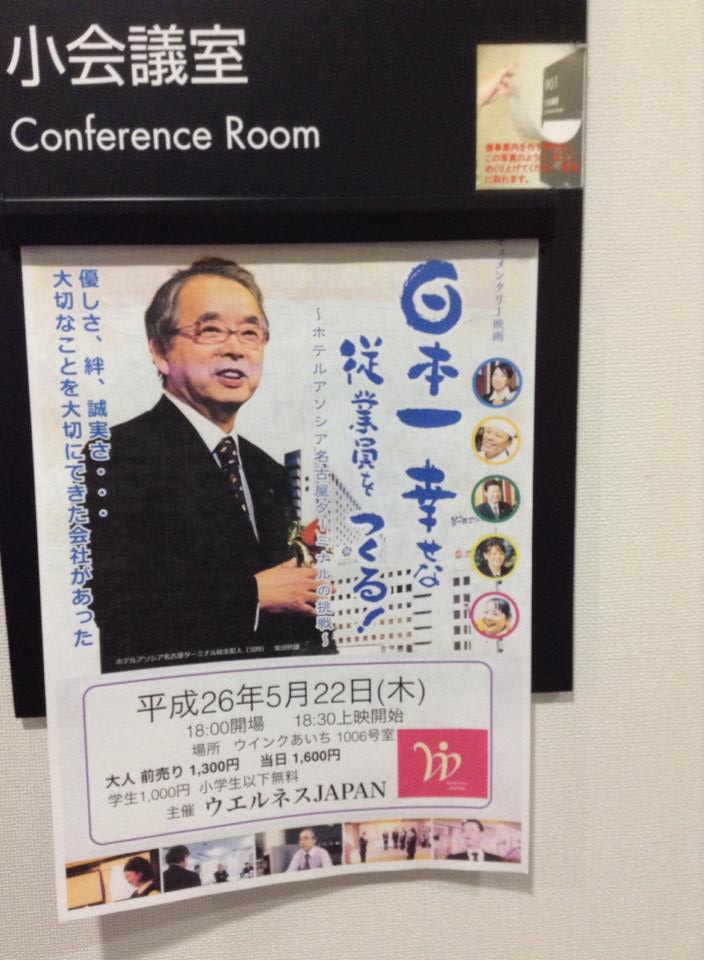 小会議室
Conference Room
901
この写真のよう
めくり上げてくだ
に取れます。
メンタリー映画
日本一 幸せな
従業員を つくる!
～ホテルアソシア名古屋ターミナルの挑戦～
優しさ、絆、誠実さ・・・
大切なことを大切にできた会社があった
ホテルアソシア名古屋ターミナル総支配人（当時） 柴田秋雄
平成26年5月22日(木)
18:00開場 18:30上映開始
場所 ウインクあいち 1006号室
大人 前売り 1,300円 当日 1,600円
学生1,000円 小学生以下無料
主催 ウエルネスJAPAN
JAPAN